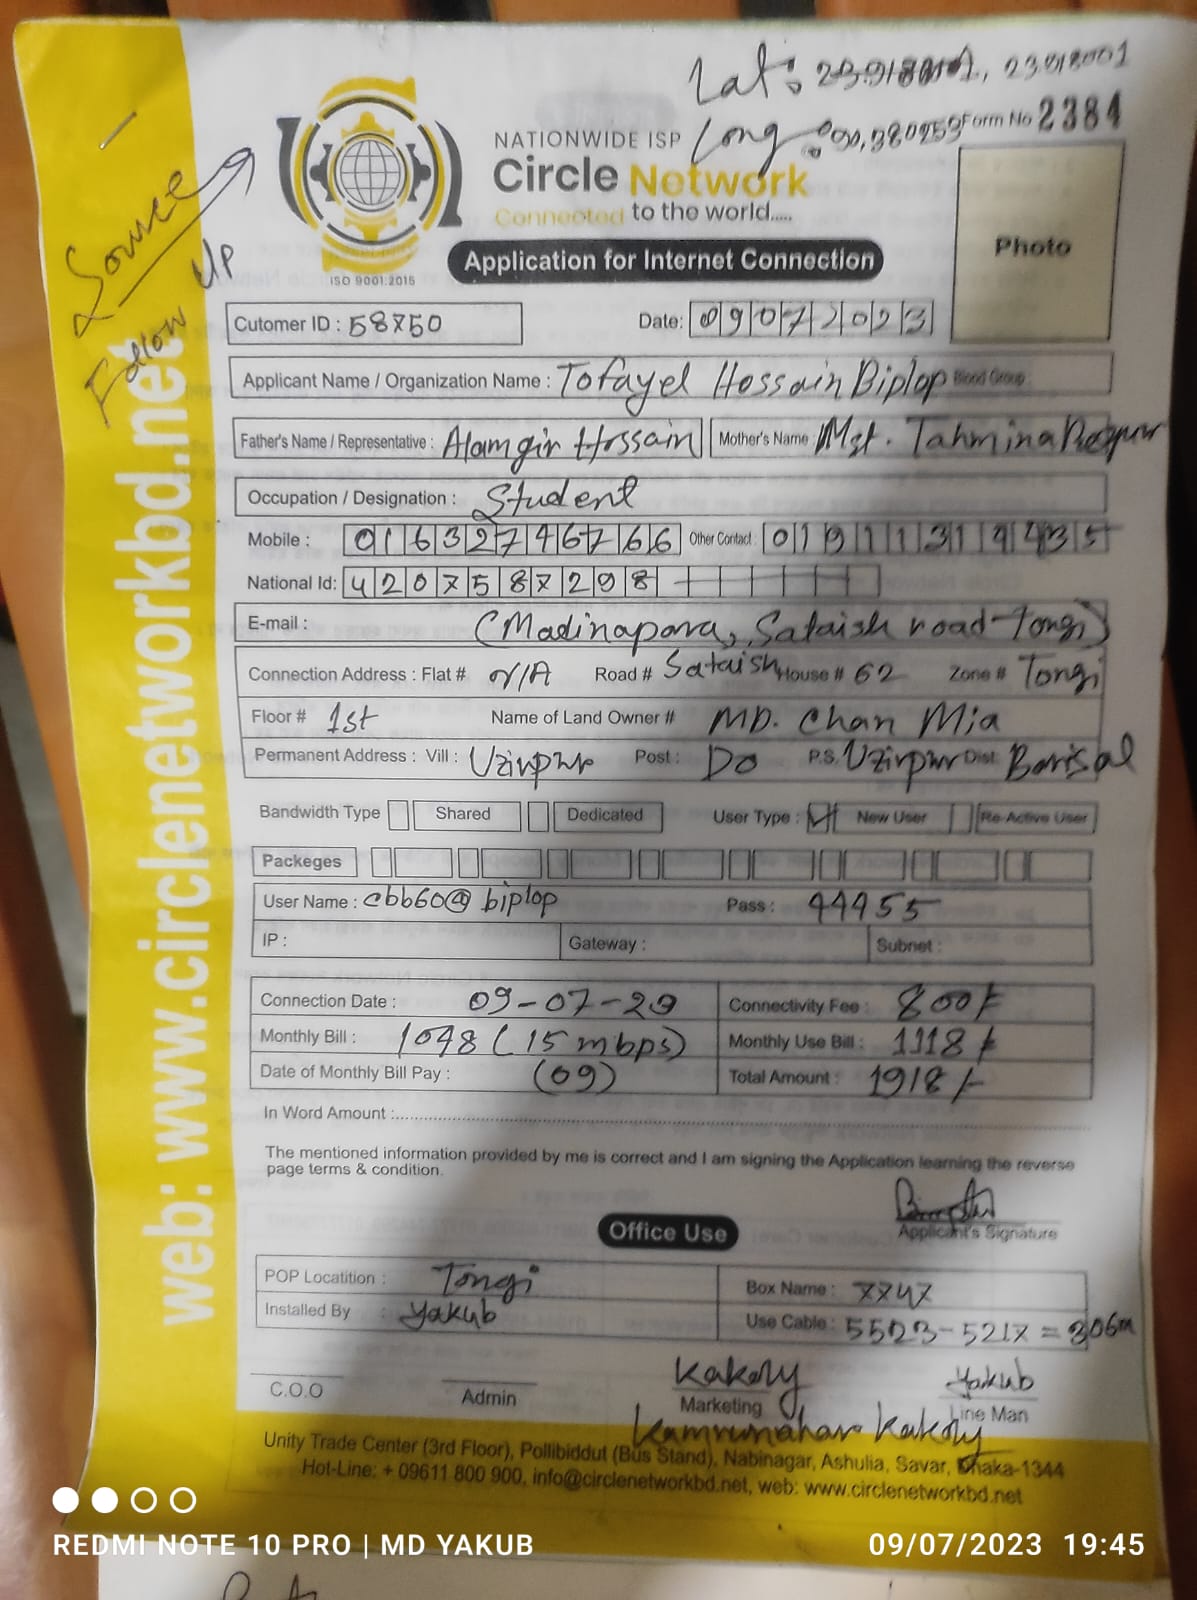 Lat: 23.918001, 23.918001
Long: 90.380253 Form No 2384
Source
Follow Up
NATIONWIDE ISP
Circle Network
Connected to the world.....
ISO 9001:2015
Application for Internet Connection
Photo
Cutomer ID : 58750 Date: 09072023
Applicant Name / Organization Name : Tofayel Hossain Biplop Blood Group :
Father's Name / Representative : Alamgir Hossain Mother's Name Mst. Tahmina
Occupation / Designation : Student
Mobile : 01632746766 Other Contact : 01911319435
National Id: 4207587298
E-mail : (Madinapara, Sataish road-Tongi)
Connection Address : Flat # N/A Road # Sataish House # 62 Zone # Tongi
Floor # 1st Name of Land Owner # MD. Chan Mia
Permanent Address : Vill : Uzirpur Post : Do P.S. Uzirpur Dist. Barisal
Bandwidth Type Shared Dedicated User Type : New User Re-Active User
Packeges
User Name : cbb60@biplop Pass : 44455
IP : Gateway : Subnet :
Connection Date : 09-07-23 Connectivity Fee : 800/-
Monthly Bill : 1048 (15 mbps) Monthly Use Bill : 1118/-
Date of Monthly Bill Pay : (09) Total Amount : 1918/-
In Word Amount :
The mentioned information provided by me is correct and I am signing the Application learning the reverse
page terms & condition.
Applicant's Signature
Office Use
POP Locatition : Tongi Box Name : 7747
Installed By : Yakub Use Cable : 5523-5217 = 306m
Kakoly Yakub
C.O.O Admin Marketing Line Man
Kamrunahar Kakoly
Unity Trade Center (3rd Floor), Pollibiddut (Bus Stand), Nabinagar, Ashulia, Savar, Dhaka-1344
Hot-Line: + 09611 800 900, info@circlenetworkbd.net, web: www.circlenetworkbd.net
web: www.circlenetworkbd.net
REDMI NOTE 10 PRO | MD YAKUB 09/07/2023 19:45